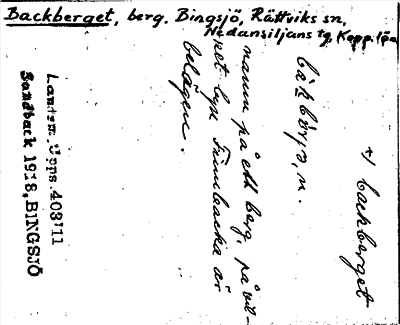 Backberget, berg. Bingsjö, Rättviks sn,
Nedansiljans tg, Kopp. län
x) backberget
namn på ett berg, på vil-
ket byn Finnbacka är
belägen.
Landsm. Upps. 408:11
Sandback 1918, BINGSJÖ